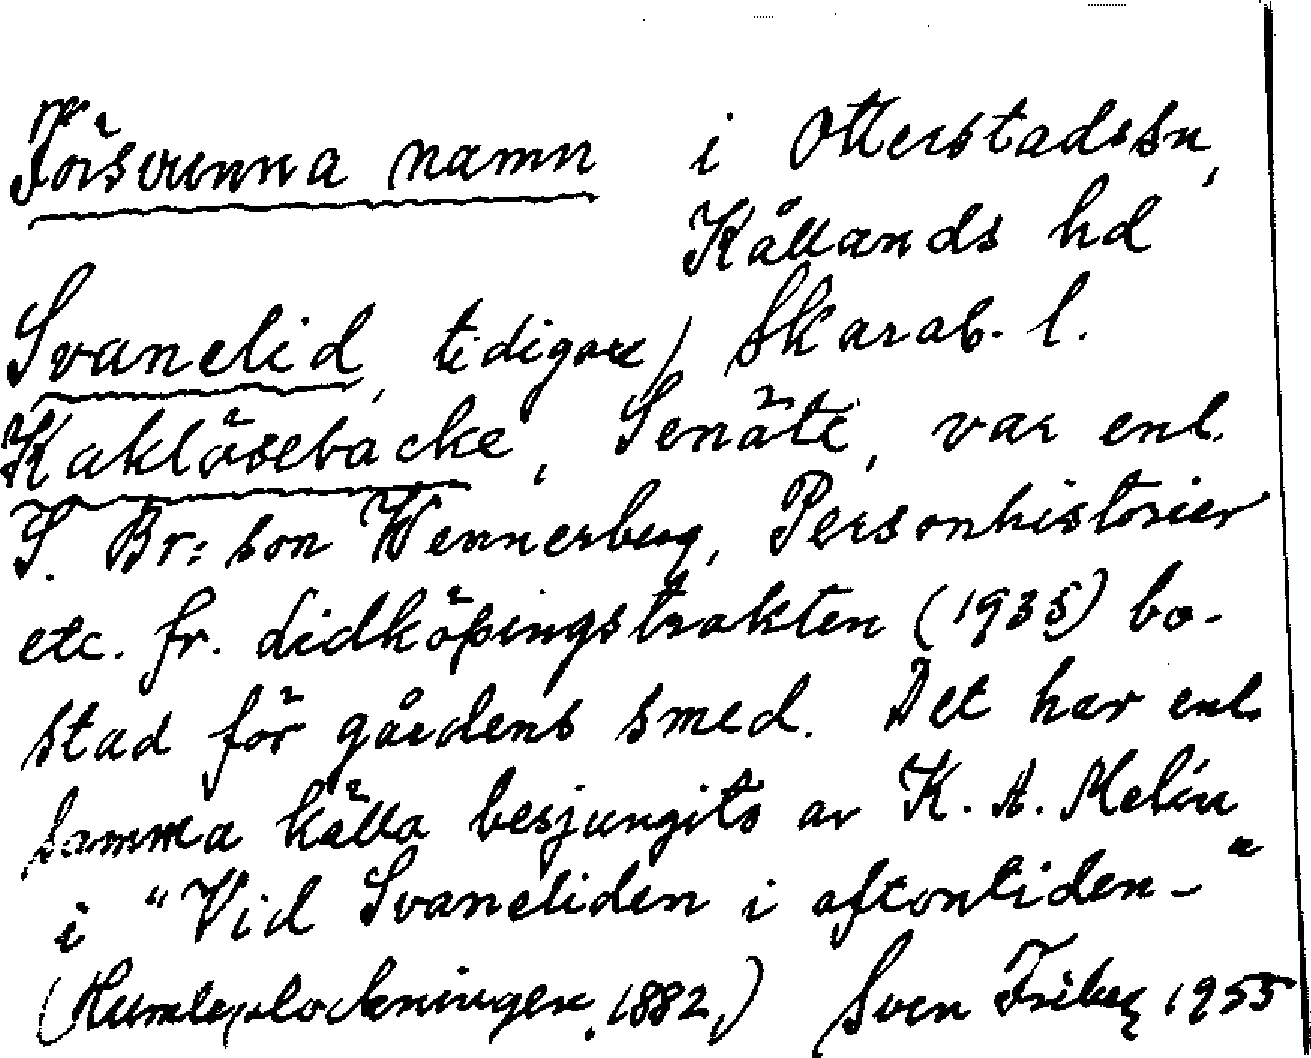 Försvunna namn i Otterstads sn,
Kållands hd
Svanelid, tidigare) Skarab. l.
Kaklösebacke, Senäte, var enl.
S. Br:son Wennerberg, Personhistorier
etc. fr. Lidköpingstrakten (1935) bo-
stad för gårdens smed. Det har enl.
samma källa besjungits av K. A. Melin
i "Vid Svaneliden i aftontiden - "
(Humleplockningen, 1882,) Sven Friberg 1955